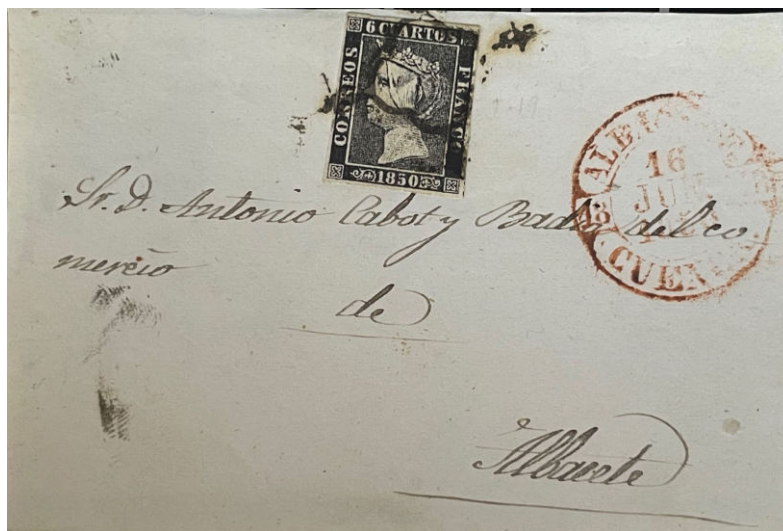 6 CUARTOS
CORREOS
FRANCO
1850
16
JUN
CUEN
Sr. D. Antonio Cabot y Badia del co
mercio
de
Albacete